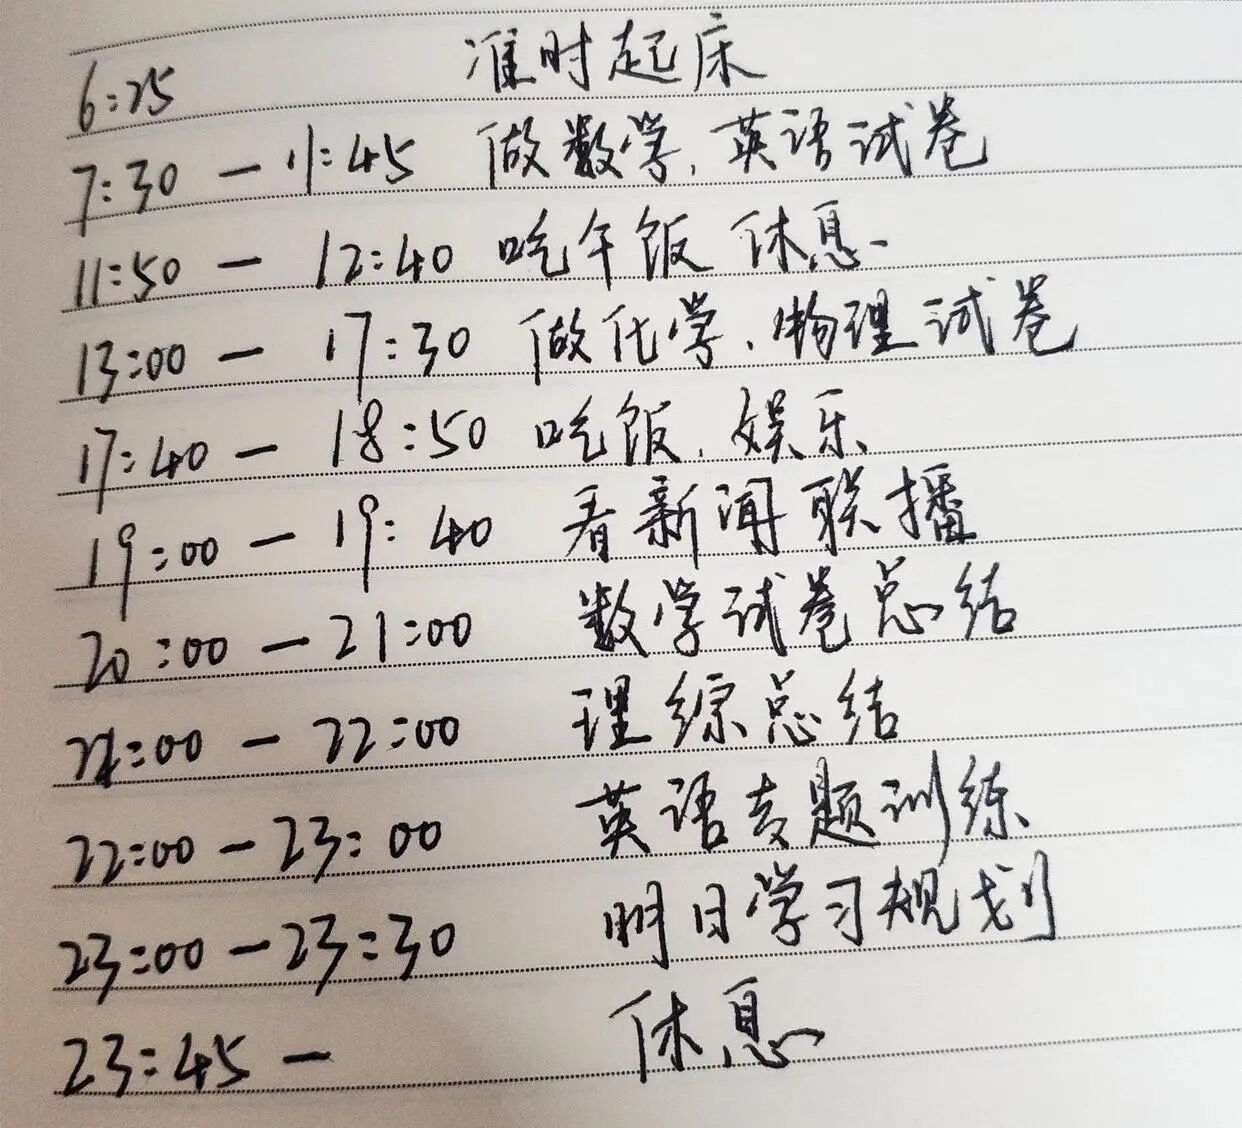 6:25 准时起床
7:30 — 11:45 做数学,英语试卷
11:50 — 12:40 吃午饭 休息
13:00 — 17:30 做化学、物理试卷
17:40 — 18:50 吃饭,娱乐
19:00 — 19:40 看新闻联播
20:00 — 21:00 数学试卷总结
21:00 — 22:00 理综总结
22:00 — 23:00 英语专题训练
23:00 — 23:30 明日学习规划
23:45 — 休息